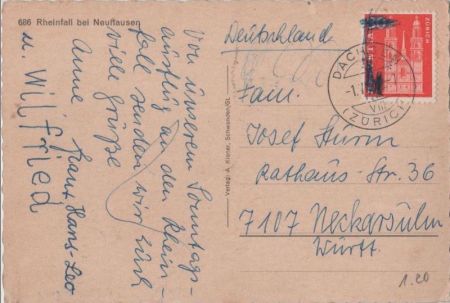 686 Rheinfall bei Neuhausen
Von unserem Sonntags-
ausflug an den Rhein-
fall senden wir Euch
viele Grüße
Franz Hans-Leo
Anne
u. Wilfried
Verlag A. Kürner, Schwanden/GL
Deutschland
Fam.
Josef Sturm
Rathaus-Str. 36
7107 Neckarsulm
Württ.
ZÜRICH
VIII
(ZÜRICH)
1.20